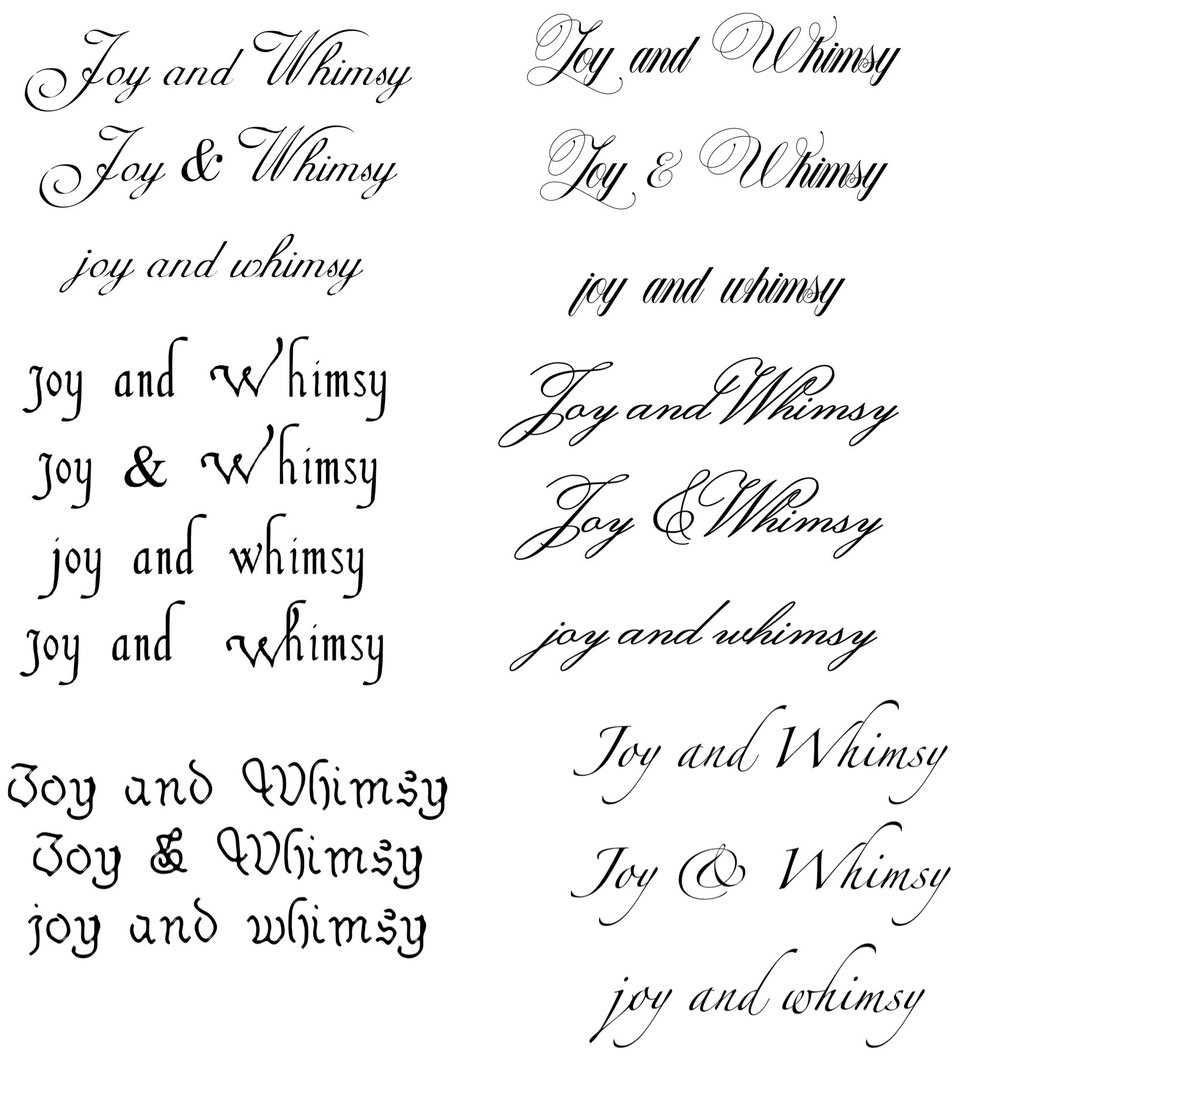 Joy and Whimsy
Joy & Whimsy
joy and whimsy
Joy and Whimsy
Joy & Whimsy
joy and whimsy
Joy and whimsy
Joy and Whimsy
Joy & Whimsy
joy and whimsy
Joy and Whimsy
Joy & Whimsy
joy and whimsy
Joy and Whimsy
Joy & Whimsy
joy and whimsy
Joy and Whimsy
Joy & Whimsy
joy and whimsy